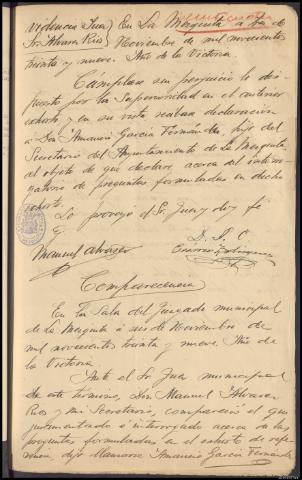 videncia Juez En La Mezquita a de
Sr. Alvarez Rios Noviembre de mil novecientos
treinta y nueve. Año de la Victoria.
Cúmplase en servicio lo dis
puesto por la Superioridad en el anterior
exhorto, y en su vista recibase declaración
a Don Amancio Garcia Fernandez, hijo del
Secretario del Ayuntamiento de La Mezquita,
al objeto de que declare acerca del interro
gatorio de preguntas formuladas en dicho
exhorto.
Lo proveyo el Sr. Juez y doy fe
Manuel Alvarez
D. S. O.
Comparecencia
En la Sala del Juzgado municipal
de La Mezquita a seis de Noviembre de
mil novecientos treinta y nueve. Año de
la Victoria
Ante el Sr Juez municipal
de este termino, Don Manuel Alvarez
Rios y mi Secretario, compareció el que
juramentado e interrogado acerca de las
preguntas formuladas en el exhorto de refe
rencia, dijo llamarse Amancio Garcia Fernandez